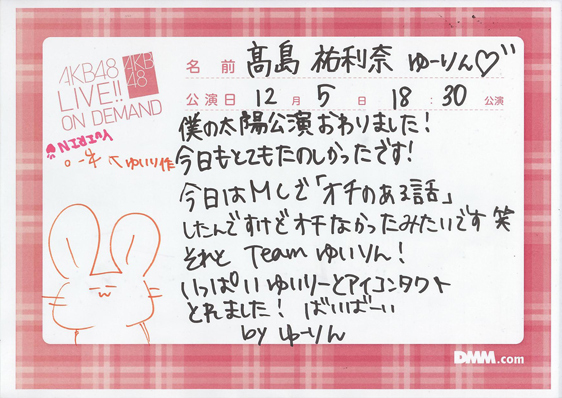 AKB48
LIVE!!
ON DEMAND
AKB
48
名前 髙島 祐利奈 ゆーりん♡
公演日 12月5日 18:30公演
僕の太陽公演おわりました!
YUIRIN
今日もとてもたのしかったです!
←ゆいり作
今日はMCで「オチのある話」
したんですけどオチなかったみたいです笑
それと Team ゆいりん!
いっぱいゆいりーとアイコンタクト
とれました! ばいばーい
by ゆーりん
DMM.com